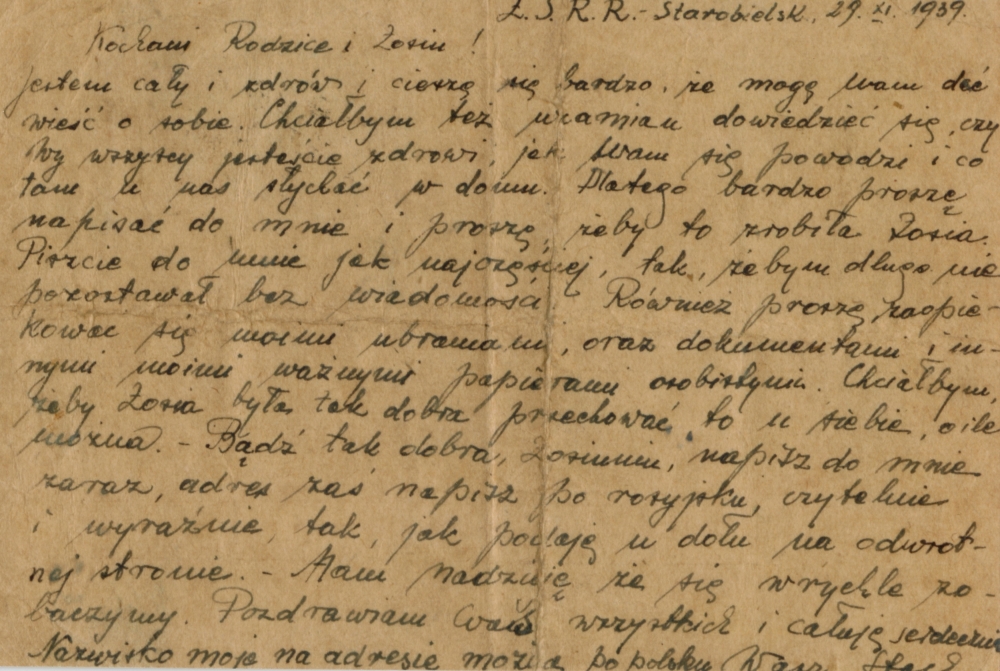 Z.S.R.R. - Starobielsk, 29. XI. 1939.
Kochani Rodzice i Zosiu!
Jestem cały i zdrów i cieszę się bardzo, że mogę Wam dać
wieść o sobie. Chciałbym też wzamian dowiedzieć się, czy
Wy wszyscy jesteście zdrowi, jak Wam się powodzi i co
tam u nas słychać w domu. Dlatego bardzo proszę
napisać do mnie i proszę, żeby to zrobiła Zosia.
Piszcie do mnie jak najczęściej, tak, żebym długo nie
pozostawał bez wiadomości. Również proszę zaopie-
kować się moimi ubraniami, oraz dokumentami i in-
nymi moimi ważnymi papierami osobistymi. Chciałbym,
żeby Zosia była tak dobra przechować to u siebie, o ile
można. - Bądź tak dobra, Zosiuniu, napisz do mnie
zaraz, adres zaś napisz po rosyjsku, czytelnie
i wyraźnie, tak, jak podaję u dołu na odwrot-
nej stronie. - Mam nadzieję że się wrychle zo-
baczymy. Pozdrawiam Was wszystkich i całuję serdecznie
Nazwisko moje na adresie można po polsku Wasz